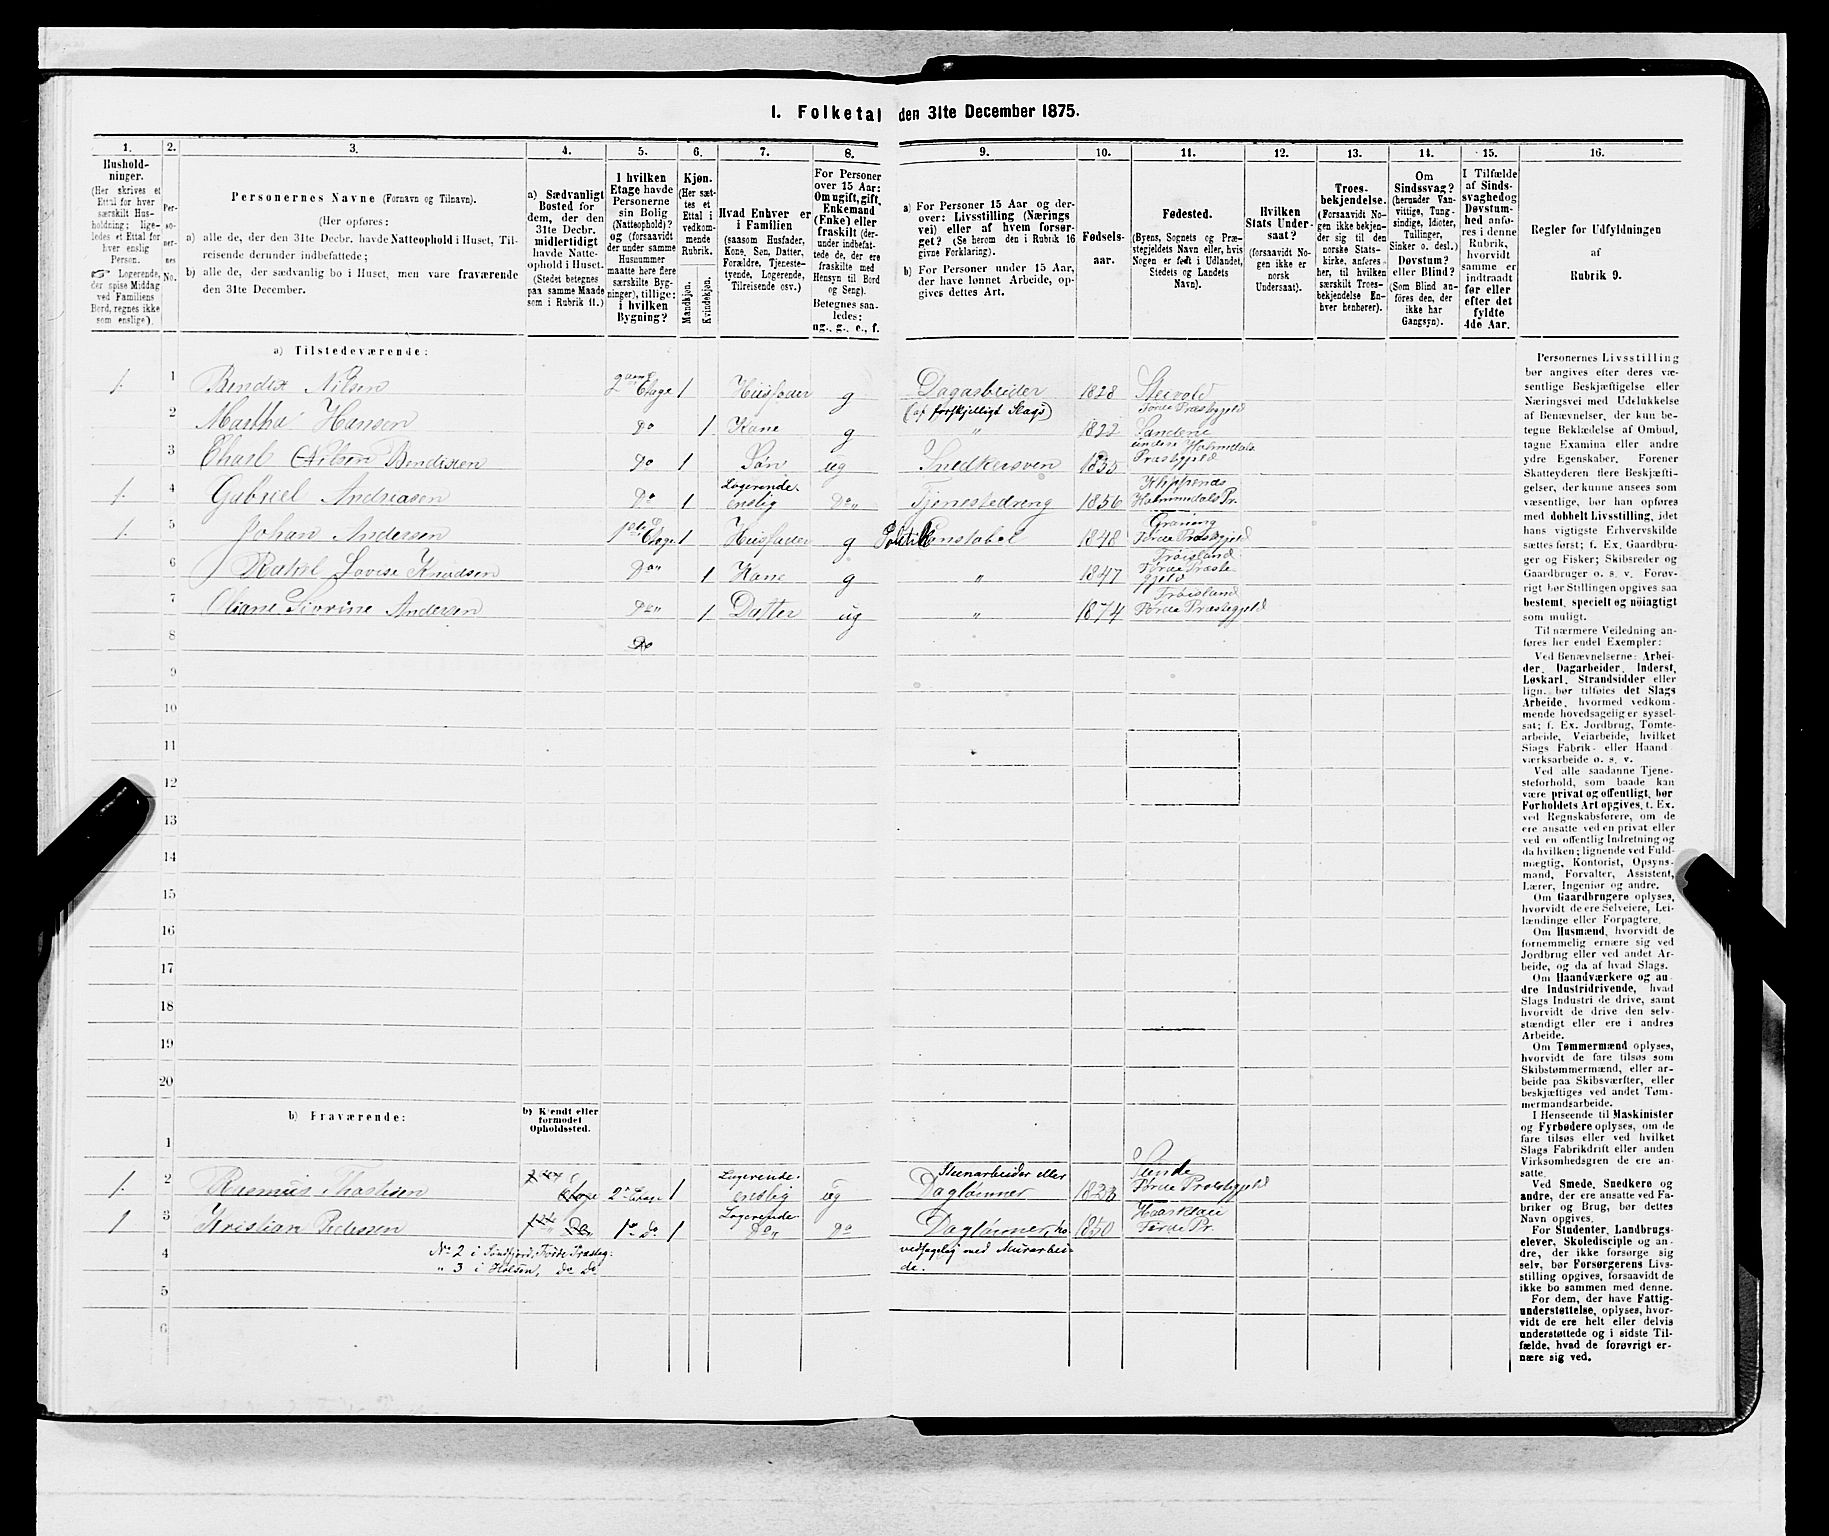 I. Folketal den 31te December 1875.
1.
2.
3.
4.
5.
6.
7.
8.
9.
10.
11.
12.
13.
14.
15.
16.
Hushold-
ninger.
(Her skrives et
Ettal for hver
særskilt Hus-
holdning; lige-
ledes et Ettal for
hver enslig
Person.
Logerende,
der spise Middag
ved Familiens
Bord, regnes ikke
som enslige).
Per-
so-
ner-
nes
No.
Personernes Navne (Fornavn og Tilnavn).
(Her opføres:
a) alle de, der den 31te Decbr. havde Natteophold i Huset, Til-
reisende derunder indbefattede;
b) alle de, der sædvanlig bo i Huset, men vare fraværende
den 31te December.
a) Sædvanligt
Bosted for
dem, der den
31te Decbr.
midlertidigt
havde Natte-
ophold i Huset.
(Stedet betegnes
paa samme Maade
som i Rubrik 11.)
I hvilken
Etage havde
Personerne
sin Bolig
(Natteophold)?
og (forsaavidt
der under samme
Husnummer
maatte høre flere
særskilte Byg-
ninger), tillige:
i hvilken
Bygning?
Kjøn.
(Her sæt-
tes et
Ettal i
vedkom-
mende
Rubrik.
Mandkjøn.
Kvindekjøn.
Hvad Enhver er
i Familien
(saasom Husfader,
Kone, Søn, Datter,
Forældre, Tjeneste-
tyende, Logerende,
Tilreisende osv.)
For Personer
over 15 Aar:
Om ugift, gift,
Enkemand
(Enke) eller
fraskilt (der-
under indbefat-
tede de, der ere
fraskilte med
Hensyn til Bord
og Seng).
Betegnes saa-
ledes:
ug., g., e., f.
a) For Personer 15 Aar og der-
over: Livsstilling (Nærings
vei) eller af hvem forsør-
get? (Se herom den i Rubrik 16
givne Forklaring).
b) For Personer under 15 Aar,
der have lønnet Arbeide, op-
gives dettes Art.
Fødsels-
aar.
Fødested.
(Byens, Sognets og Præ-
stegjeldets Navn eller, hvis
Nogen er født i Udlandet,
Stedets og Landets
Navn).
Hvilken
Stats Under-
saat?
(forsaavidt No-
gen ikke er
norsk
Undersaat).
Troes-
bekjendelse.
(Forsaavidt No-
gen ikke bekjen-
der sig til den
norske Stats-
kirke, anføres
her, til hvilken
særskilt Troes-
bekjendelse En-
hver henhører).
Om
Sindssvag?
(herunder Van-
vittige, Tung-
sindige, Idioter,
Tullinger,
Sinker o. desl.)
Døvstum?
eller Blind?
(Som Blind an-
føres den, der
ikke har
Gangsyn).
I Tilfælde
af Sinds-
svaghed og
Døvstum-
hed anfø-
res i denne
Rubrik,
hvorvidt
samme er
indtraadt
før eller
efter det
fyldte
4de Aar.
Regler for Udfyldningen
af
Rubrik 9.
a) Tilstedeværende:
1. 1 Bendix Nilsen 2den Etage 1 Husfader g Dagarbeider 1828 Steivold
(af forskjelligt Slags) Førde Præstegjeld
2 Martha Hansen Do 1 Kone g " 1822 Sandene
under Holmedals
3 Charl Nilsen Bendixen Do 1 Søn ug Snedkersven 1855 Præstgjeld
Logerende. Klippenæs
1. 4 Gabriel Andreasen Do 1 enslig Do " Tjenestedreng 1856 Holmedals Pr.
1. 5 Johan Andersen 1ste Etage 1 Husfader g Politi Konstabel 1848 Førde Præstegjeld
Frøisland
6 Rahel Lovise Knudsen Do " 1 Kone g " 1847 Førde Præste-
gjeld
Frøisland
7 Oliane Sivrine Andersen Do " 1 Datter ug " 1874 Førde Præstegjeld
8 Do
9
10
11
12
13
14
15
16
17
18
19
20
b) Fraværende:
b) Kjendt eller
formodet
Opholdssted.
1
Logerende. Stenarbeider eller Sunde
1. 2 Rasmus Etage 2. Etage 1 enslig ug Daglønner 1833 Førde Præstegjeld
Logerende
1 3 Kristian Pedersen 1ste Do 1ste Do 1 Do " Do Daglønner, ho- 1850 Førde Pr.
4 No 2 i Søndfjord, Førde Præsteg: vedsagelig med Murarbei-
" 3 i Holsen, Do Do de.
5
6
Personernes Livsstilling
bør angives efter deres væ-
sentlige Beskjæftigelse eller
Næringsvei med Udelukkelse
af Benævnelser, der kun be-
tegne Beklædelse af Ombud,
tagne Examina eller andre
ydre Egenskaber. Forener
Skatteyderen flere Beskjæfti-
gelser, der kunne ansees som
væsentlige, bør han opføres
med dobbelt Livsstilling, idet
hans vigtigste Erhvervskilde
sættes først; f. Ex. Gaardbru-
ger og Fisker; Skibsreder og
Gaardbruger o. s. v. Forøv-
rigt bør Stillingen opgives saa
bestemt, specielt og nöiagtigt
som muligt.
Til nærmere Veiledning an-
føres her endel Exempler:
Ved Benævnelserne: Arbei-
der, Dagarbeider, Inderst,
Løskarl, Strandsidder eller
lign. bør tilføies det Slags
Arbeide, hvormed vedkom-
mende hovedsagelig er syssel-
sat; f. Ex. Jordbrug, Tomte-
arbeide, Veiarbeide, hvilket
Slags Fabrik- eller Haand
værksarbeide o. s. v.
Ved alle saadanne Tjene-
steforhold, som baade kan
være privat og offentligt, bør
Forholdets Art opgives, t. Ex.
ved Regnskabsførere, om de
ere ansatte ved en privat eller
ved en offentlig Indretning og
da hvilken; lignende ved Fuld-
mægtig, Kontorist, Opsyns-
mand, Forvalter, Assistent,
Lærer, Ingeniør og andre.
Om Gaardbrugere oplyses,
hvorvidt de ere Selveiere, Lei-
lændinge eller Forpagtere.
Om Husmænd, hvorvidt de
fornemmelig ernære sig ved
Jordbrug eller ved andet Ar-
beide, og da af hvad Slags.
Om Haandværkere og an-
dre Industridrivende, hvad
Slags Industri de drive, samt
hvorvidt de drive den selv-
stændigt eller ere i andres
Arbeide.
Om Tømmermænd oplyses,
hvorvidt de fare tilsøs som
Skibstømmermænd, eller ar-
beide paa Skibsværfter, eller
beskjæftiges ved andet Tøm-
mermandsarbeide.
I Henseende til Maskinister
og Fyrbødere oplyses, om de
fare tilsøs eller ved hvilket
Slags Fabrikdrift eller anden
Virksomhedsgren de ere an-
satte.
Ved Smede, Snedkere og
andre, der ere ansatte ved Fa-
briker og Brug, bør dettes
Navn opgives.
For Studenter, Landbrugs-
elever, Skoledisciple og an-
dre, der ikke forsørge sig
selv, bør Forsørgerens Livs-
stilling opgives, forsaavidt de
ikke bo sammen med denne.
For dem, der have Fattig-
understøttelse, oplyses, hvor-
vidt de ere helt eller delvis
understøttede og i sidste Til-
fælde, hvad de forøvrigt er-
nære sig ved.